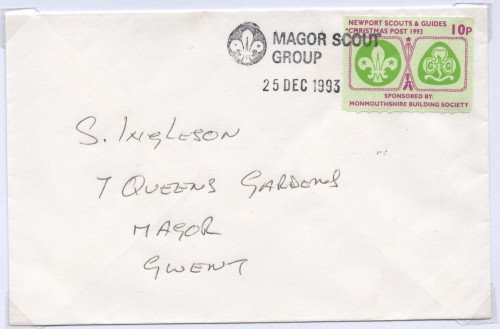 MAGOR SCOUT
GROUP
25 DEC 1993
NEWPORT SCOUTS & GUIDES
CHRISTMAS POST 1993 10P
SPONSORED BY:
MONMOUTHSHIRE BUILDING SOCIETY
S. INGLESON
7 QUEENS GARDENS
MAGOR
GWENT